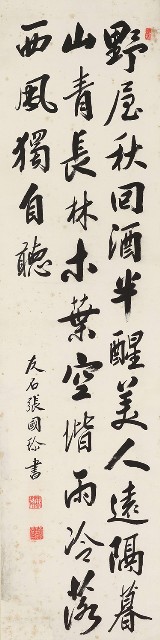 野屋秋回酒半醒美人遠隔暮
山青長林木葉空堦雨冷落
西風獨自聽
友石張國珍書